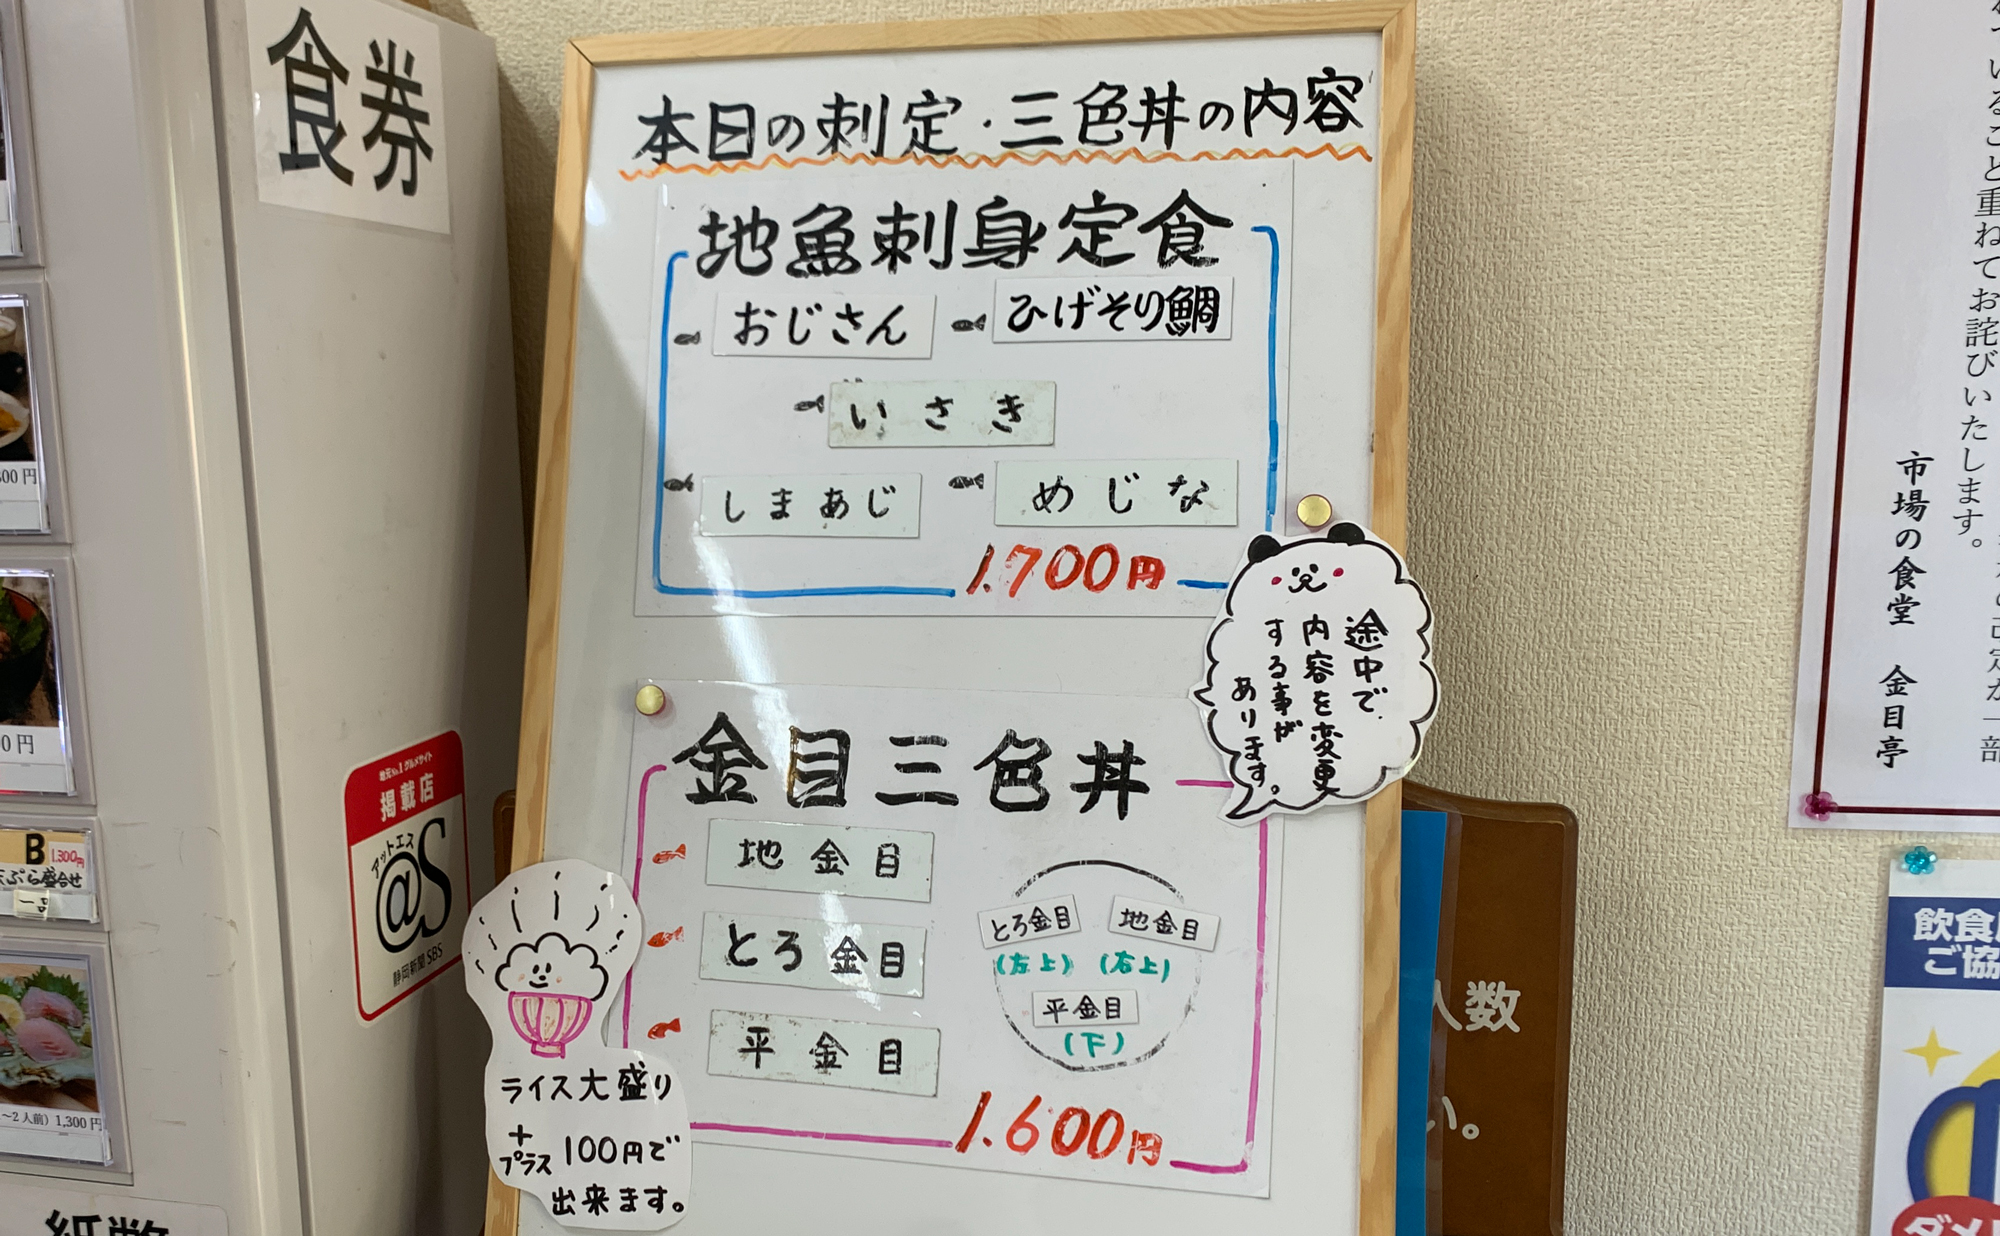 食券
本日の刺定・三色丼の内容
地魚刺身定食
おじさん
ひげそり鯛
いさき
しまあじ
めじな
1.700円
途中で
内容を変更
する事が
あります。
金目三色丼
地金目
とろ金目
平金目
とろ金目
地金目
(左上)
(右上)
平金目
(下)
1.600円
ライス大盛り
+
プラス
100円で
出来ます。
地元No.1グルメサイト
掲載店
アットエス
@S
静岡新聞SBS
00円
0円
B
1.300円
ぷら盛合せ
～2人前) 1,300円
いること重ねてお詫びいたします。
市場の食堂 金目亭
人数
い。
飲食
ご協
ダメ